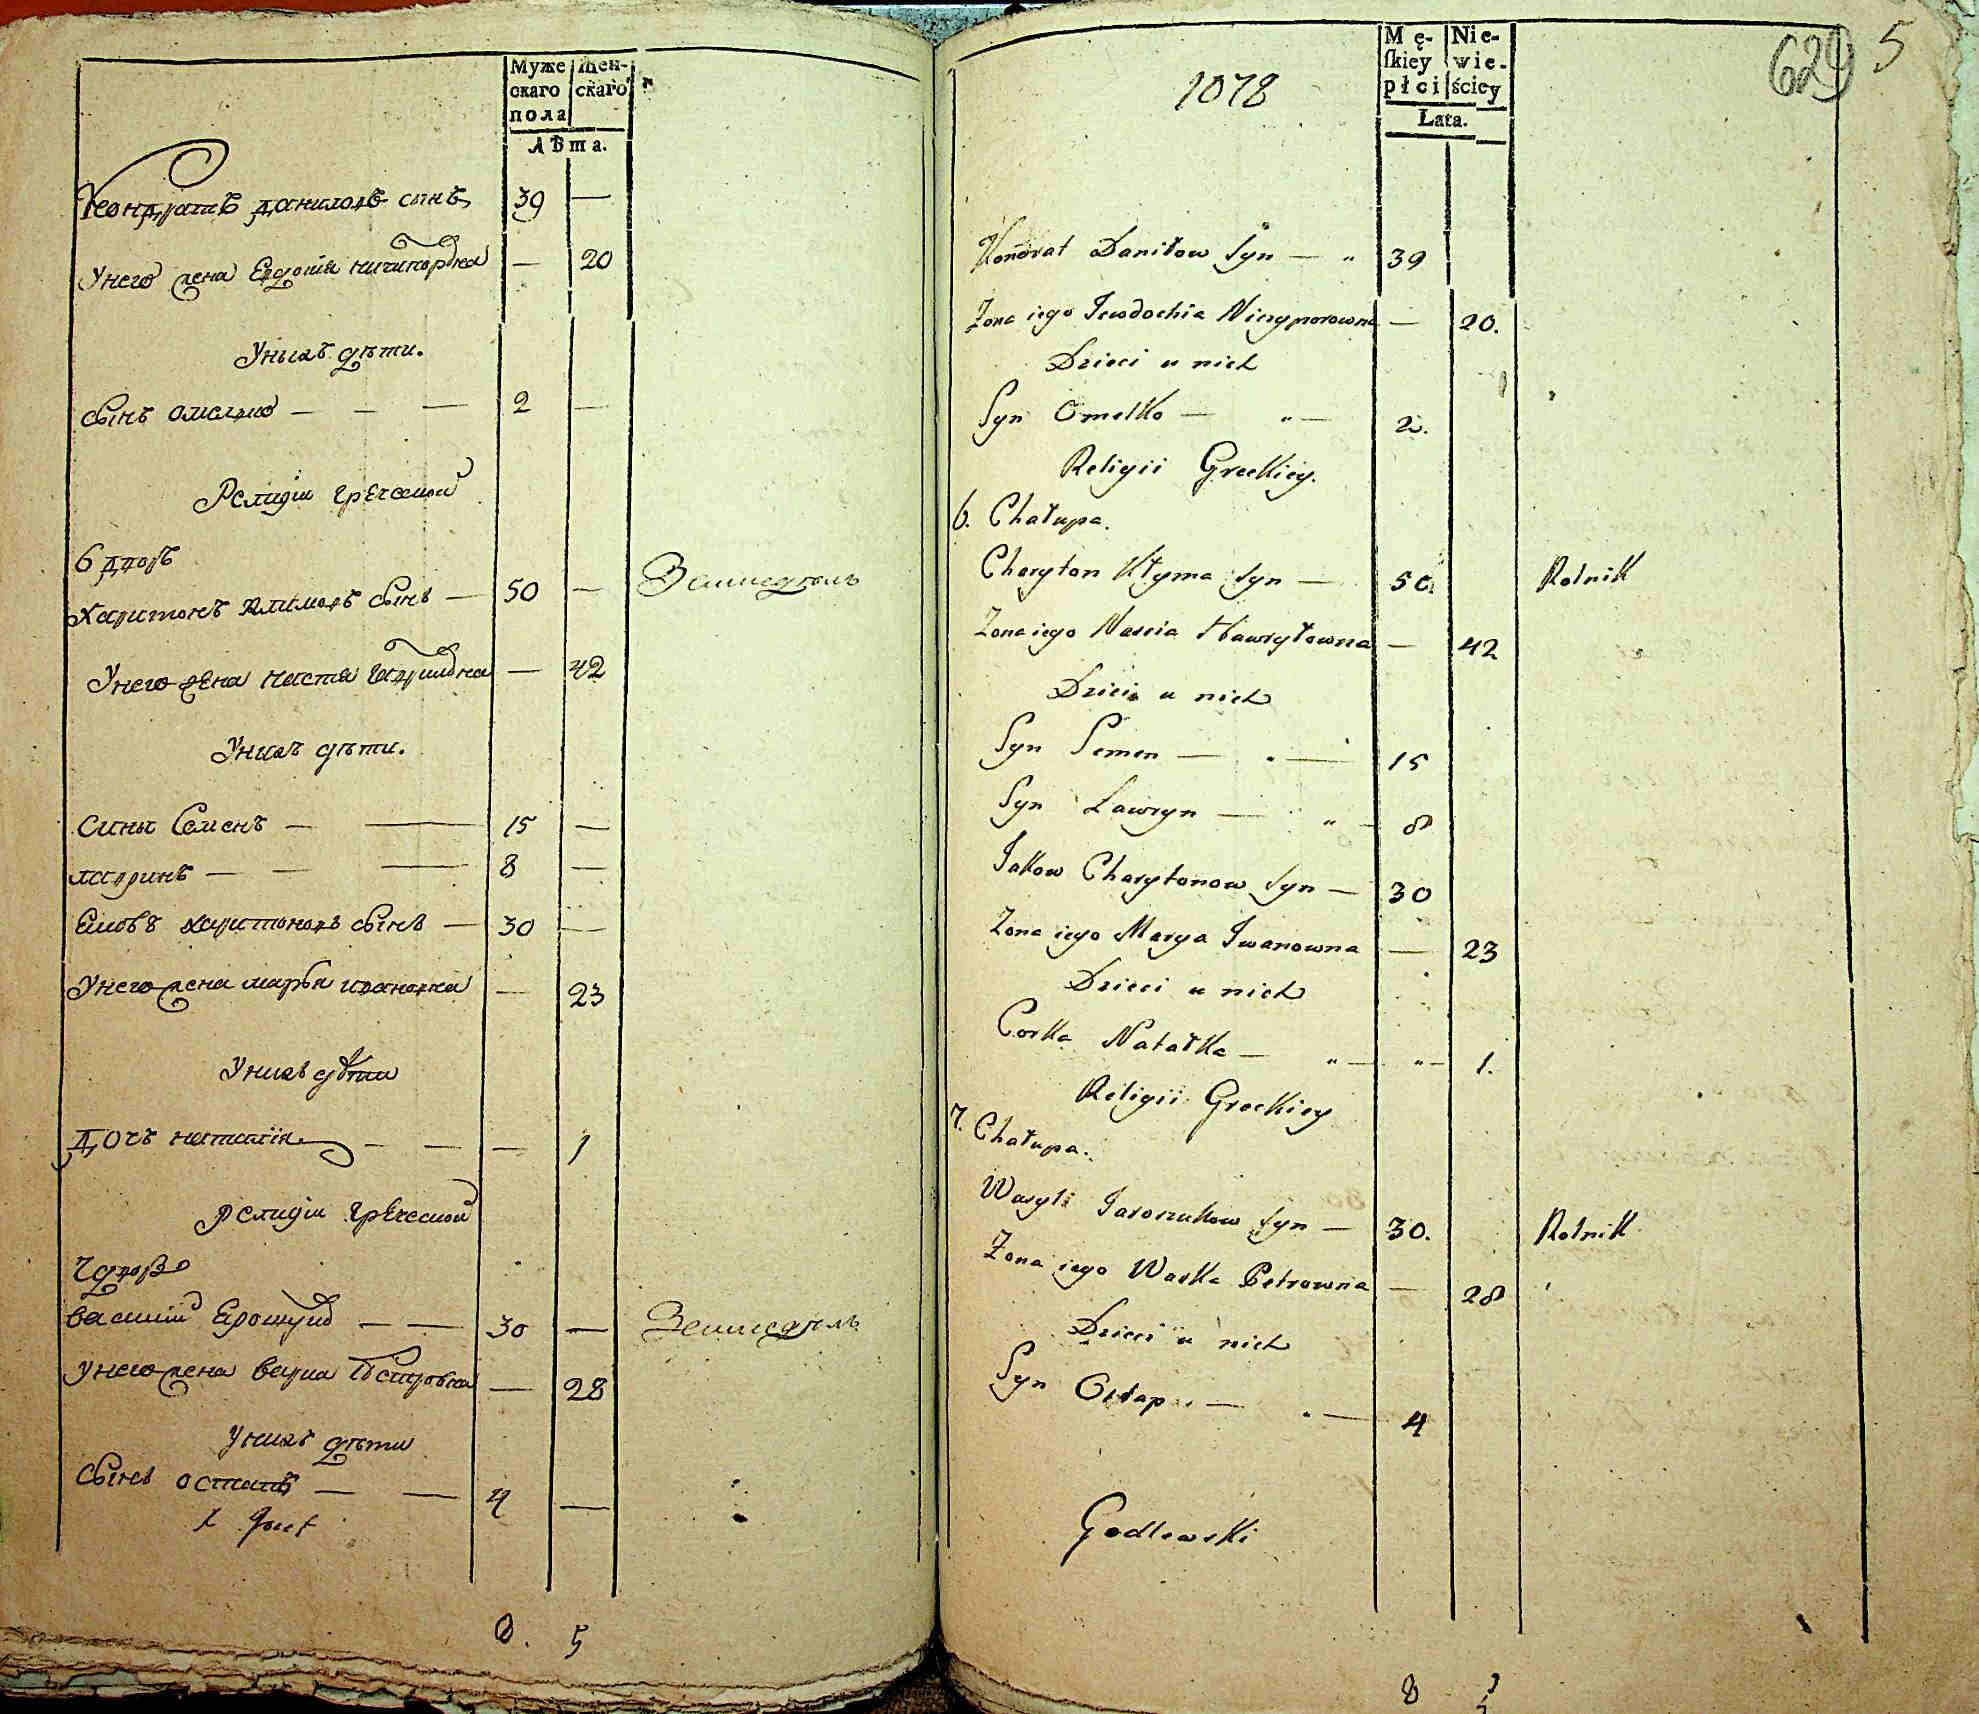 Муже Жен-
скаго скаго
пола
Лѣта.
Кондратъ Даниловъ сынъ 39 —
Унего жена Евдокія Ничипоровна — 20
Унихъ дѣти.
Сынъ Омелко — — — 2 —
Религіи Греческой
6 дворъ
Харитонъ Климовъ сынъ — 50 — Земледѣль
Унего жена Настя Гавриловна — 42
Унихъ дѣти.
Сины Семенъ — — 15 —
Лавринъ — — — 8 —
Яковъ Харитоновъ сынъ — 30 —
Унего жена Марья Ивановна — 23
Унихъ дѣти
Дочъ Наталія — — — 1
Религіи Греческой
7 дворъ
Василій Ярощукъ — — 30 — Земледѣль
Унего жена Варка Петровна — 28
Унихъ дѣти
Сынъ Остапъ — — 4 —
8. 5
1078
629 5
Mę- Nie-
ſkiey wie-
płci ściey
Lata.
Kondrat Daniłow Syn — " 39
Zona iego Jewdochia Niczyporowna — 20.
Dzieci u nich
Syn Omelko — " — 2.
Religii Greckiey.
6. Chałupa.
Charyton Kłyma Syn — 50. Rolnik
Zona iego Nascia Hawryłowna — 42
Dzieci u nich
Syn Semen — . — 15
Syn Lawryn — " — 8
Jakow Charytonow Syn — 30
Zona iego Marya Iwanowna — 23
Dzieci u nich
Corka Natałka — " — " — 1.
Religii Greckiey
7. Chałupa.
Wasyli Jaroszukow Syn — 30. Rolnik
Zona iego Warka Petrowna — 28
Dzieci u nich
Syn Ostap — . — 4
Godlewski
8 5